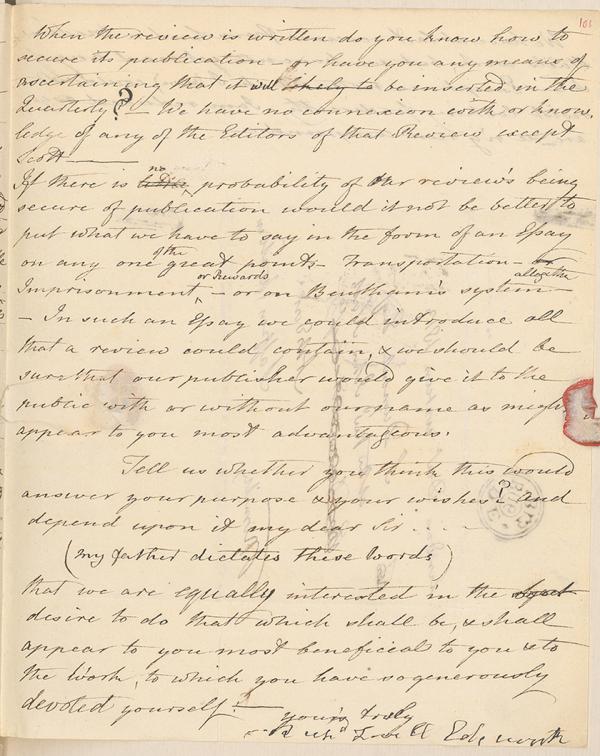 101
When the review is written do you know how to
secure its publication – or have you any means of
ascertaining that it will likely to be inserted in the
Quarterly? – We have no connexion with or know
ledge of any of the Editors of that Review except
Scott —
no
If there is probability of our review's being
secure of publication would it not be better to
put what we have to say in the form of an Essay
of the
on any one great points – Transportation – or
or Rewards altogether
Imprisonment ^ – or on Bentham's system –
– In such an Essay we could introduce all
that a review could contain, & we should be
sure that our publisher would give it to the
public with or without our name as might
appear to you most advantageous.
Tell us whether you think this would
answer your purpose & your wishes? And
depend upon it my dear Sir . . . .
(my father dictates these words)
that we are equally interested in the
desire to do that which shall be, & shall
appear to you most beneficial to you & to
the Work, to which you have so generously
devoted yourself. —
yours truly
Richd Lovell Edgeworth